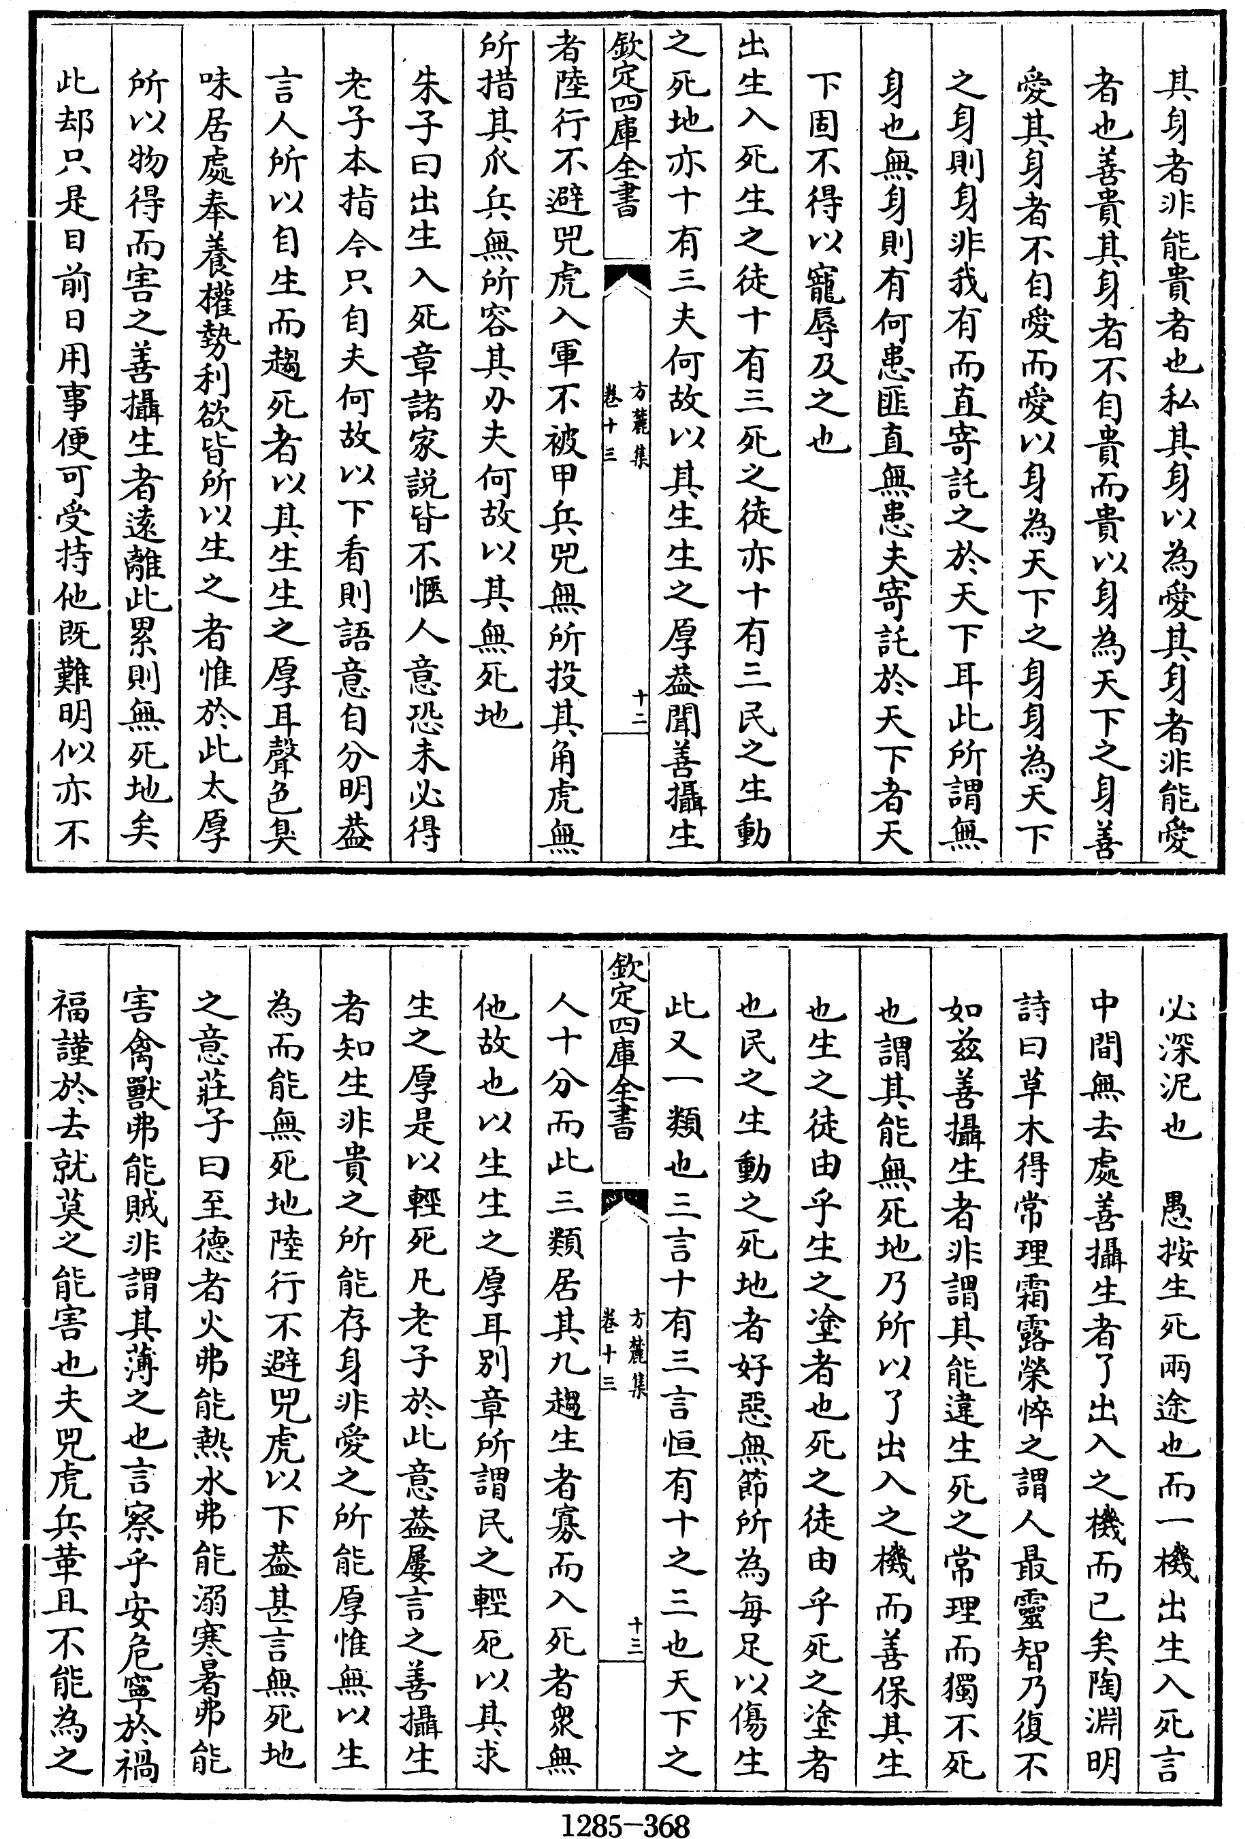 其身者非能貴者也私其身以為愛其身者非能愛
者也善貴其身者不自貴而貴以身為天下之身善
愛其身者不自愛而愛以身為天下之身身為天下
之身則身非我有而直寄託之於天下耳此所謂無
身也無身則有何患匪直無患夫寄託於天下者天
下固不得以寵辱及之也
出生入死生之徒十有三死之徒亦十有三民之生動
之死地亦十有三夫何故以其生生之厚葢聞善攝生
欽定四庫全書
方麓集
卷十三
十二
者陸行不避兕虎入軍不被甲兵兕無所投其角虎無
所措其爪兵無所容其刃夫何故以其無死地
朱子曰出生入死章諸家説皆不愜人意恐未必得
老子本指今只自夫何故以下看則語意自分明葢
言人所以自生而趨死者以其生生之厚耳聲色臭
味居處奉養權勢利欲皆所以生之者惟於此太厚
所以物得而害之善攝生者遠離此累則無死地矣
此却只是目前日用事便可受持他既難明似亦不
必深泥也 愚按生死兩途也而一機出生入死言
中間無去處善攝生者了出入之機而已矣陶淵明
詩曰草木得常理霜露榮悴之謂人最靈智乃復不
如兹善攝生者非謂其能違生死之常理而獨不死
也謂其能無死地乃所以了出入之機而善保其生
也生之徒由乎生之塗者也死之徒由乎死之塗者
也民之生動之死地者好惡無節所為每足以傷生
此又一類也三言十有三言恒有十之三也天下之
欽定四庫全書
方麓集
卷十三
十三
人十分而此三類居其九趨生者寡而入死者衆無
他故也以生生之厚耳别章所謂民之輕死以其求
生之厚是以輕死凡老子於此意葢屢言之善攝生
者知生非貴之所能存身非愛之所能厚惟無以生
為而能無死地陸行不避兕虎以下葢甚言無死地
之意莊子曰至德者火弗能熱水弗能溺寒暑弗能
害禽獸弗能賊非謂其薄之也言察乎安危寧於禍
福謹於去就莫之能害也夫兕虎兵革且不能為之
1285-368